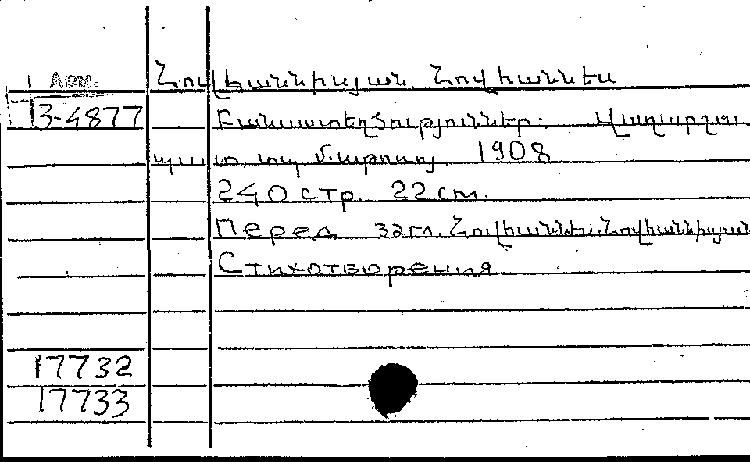 Арм. Հովհաննիսյան Հովհաննես
13-4877 Բանաստեղծություններ. Վաղարշա
պատ տպ Մ. աթոռոյ 1908
240 стр. 22 см.
Перед загл. Հովհաննես Հովհանիսյան
Стихотворения
17732
17733